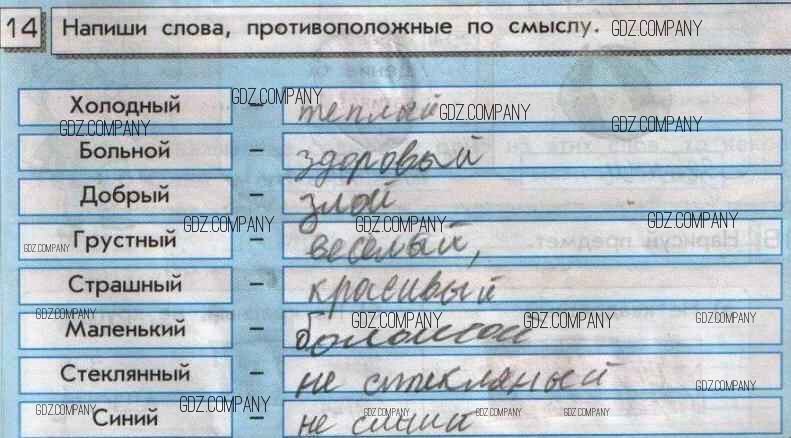 14 Напиши слова, противоположные по смыслу. GDZ.COMPANY
Холодный – теплый
GDZ.COMPANY GDZ.COMPANY
GDZ.COMPANY GDZ.COMPANY
Больной – здоровый
Добрый – злой
GDZ.COMPANY GDZ.COMPANY GDZ.COMPANY
Грустный – веселый,
GDZ.COMPANY
Страшный – красивый
GDZ.COMPANY GDZ.COMPANY GDZ.COMPANY GDZ.COMPANY
Маленький – большой
Стеклянный – не стекляный
GDZ.COMPANY
GDZ.COMPANY GDZ.COMPANY GDZ.COMPANY GDZ.COMPANY GDZ.COMPANY
Синий – не синий